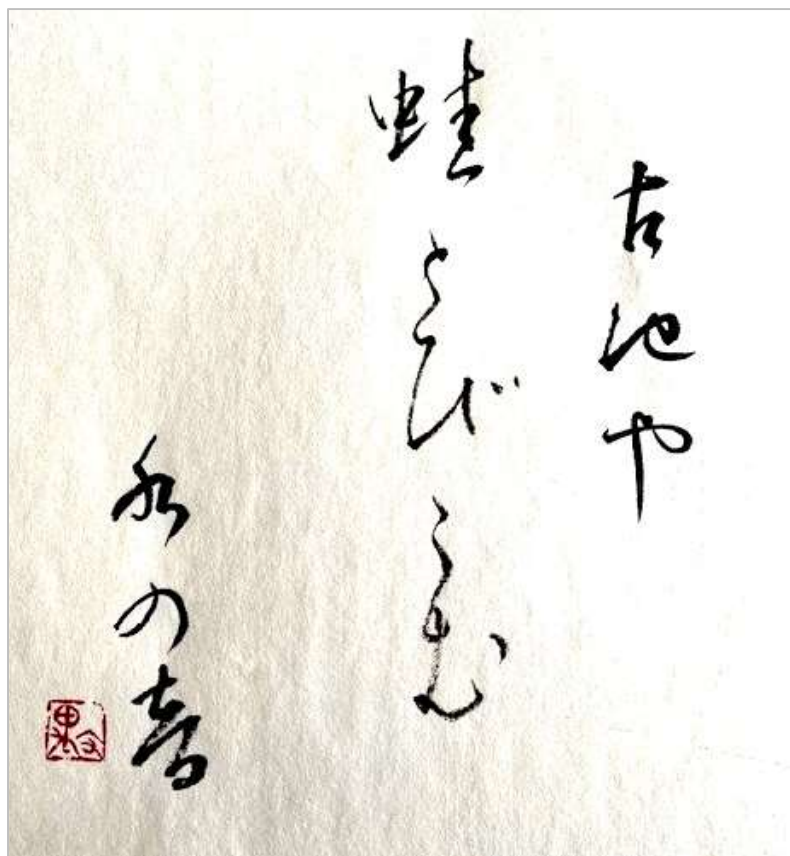 古池や
蛙とびこむ
水の音